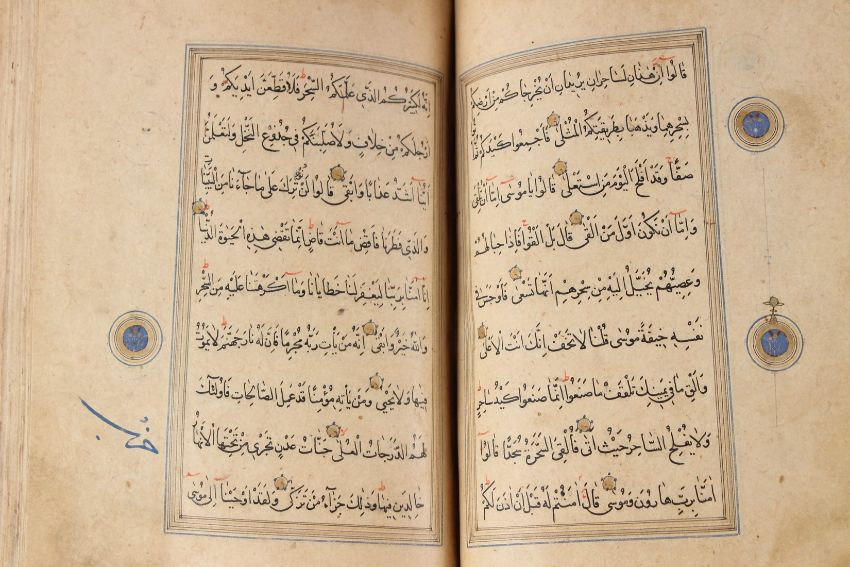 قالوا إن هذان لساحران يريدان أن يخرجاكم من أرضكم
بسحرهما ويذهبا بطريقتكم المثلى فأجمعوا كيدكم ثم ائتوا
صفا وقد أفلح اليوم من استعلى قالوا يا موسى إما أن تلقي
وإما أن نكون أول من ألقى قال بل ألقوا فإذا حبالهم
وعصيهم يخيل إليه من سحرهم أنها تسعى فأوجس في
نفسه خيفة موسى قلنا لا تخف إنك أنت الأعلى
وألق ما في يمينك تلقف ما صنعوا إنما صنعوا كيد ساحر
ولا يفلح الساحر حيث أتى فألقي السحرة سجدا قالوا
آمنا برب هارون وموسى قال آمنتم له قبل أن آذن لكم
إنه لكبيركم الذي علمكم السحر فلأقطعن أيديكم و
أرجلكم من خلاف ولأصلبنكم في جذوع النخل ولتعلمن
أينا أشد عذابا وأبقى قالوا لن نؤثرك على ما جاءنا من البينات
والذي فطرنا فاقض ما أنت قاض إنما تقضي هذه الحيوة الدنيا
إنا آمنا بربنا ليغفر لنا خطايانا وما أكرهتنا عليه من السحر
والله خير وأبقى إنه من يأت ربه مجرما فإن له نار جهنم لا يموت
فيها ولا يحيى ومن يأته مؤمنا قد عمل الصالحات فأولئك
لهم الدرجات العلى جنات عدن تجري من تحتها الأنهار
خالدين فيها وذلك جزاء من تزكى ولقد أوحينا إلى موسى
حزب